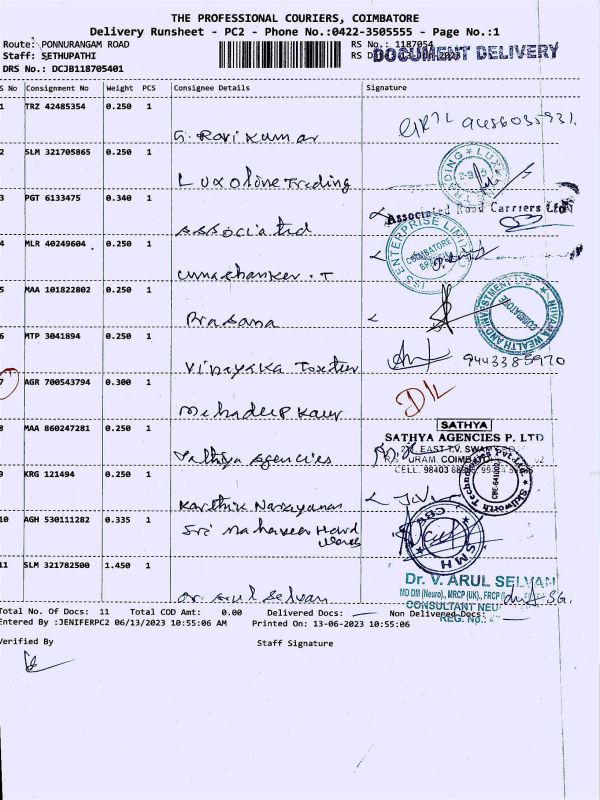 THE PROFESSIONAL COURIERS, COIMBATORE
Delivery Runsheet - PC2 - Phone No.:0422-3505555 - Page No.:1
Route: PONNURANGAM ROAD RS No.: 1187054
Staff: SETHUPATHI RS D 13-JUN-2023
DOCUMENT DELIVERY
DRS No.: DCJB118705401
S No Consignment No Weight PCS Consignee Details Signature
1 TRZ 42485354 0.250 1
G. Ravi Kumar
2 SLM 321705865 0.250 1
Luxoline Trading
3 PGT 6133475 0.340 1
Associated Road Carriers Ltd
Associated
4 MLR 40249604 0.250 1
ISS ENTERPRISE LIMITED COIMBATORE BRANCH
Umashanker. T
5 MAA 101822802 0.250 1
NUVAMA WEALTH AND INVESTMENT COIMBATORE
Prasana
6 MTP 3041894 0.250 1
Vinayaka Textiles 9443385970
7 AGR 700543794 0.300 1
DL
Mehadeep Kaur
8 MAA 860247281 0.250 1
SATHYA
SATHYA AGENCIES P. LTD
EAST T.V. SWA
URAM. COIMB
Sathya Agencies
CELL: 98403
9 KRG 121494 0.250 1
Karthik Narayanan
10 AGH 530111282 0.335 1
Sri Mahaveer Hard
Wares
SMH CBE
11 SLM 321782500 1.450 1
Dr. V. ARUL SELVAN
MD DM (Neuro)., MRCP (UK)., FRCP
Dr. Arul Selvan
CONSULTANT NEU
REG. No.:
Total No. Of Docs: 11 Total COD Amt: 0.00 Delivered Docs: Non Delivered Docs:
Entered By :JENIFERPC2 06/13/2023 10:55:06 AM Printed On: 13-06-2023 10:55:06
Verified By Staff Signature